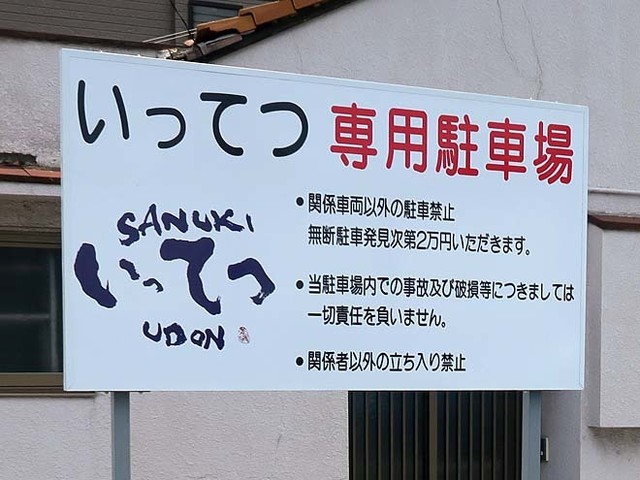 いってつ 専用駐車場
SANUKI
いってつ
UDON
●関係車両以外の駐車禁止
無断駐車発見次第2万円いただきます。
●当駐車場内での事故及び破損等につきましては
一切責任を負いません。
●関係者以外の立ち入り禁止